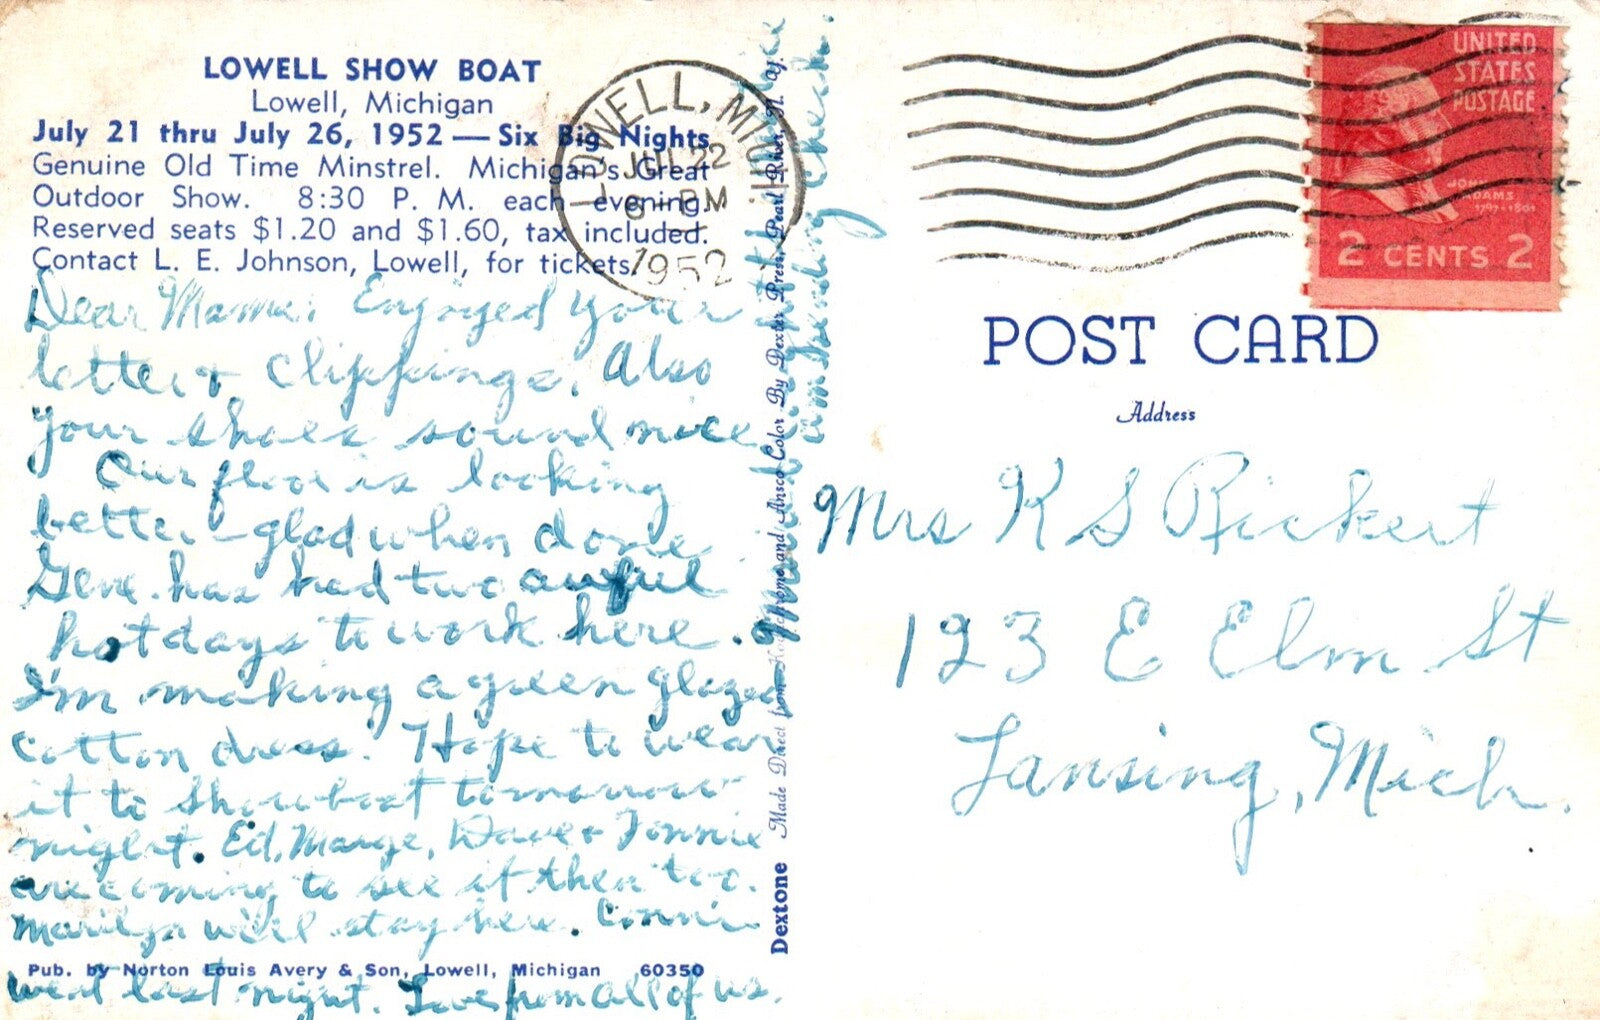 LOWELL SHOW BOAT
Lowell, Michigan
July 21 thru July 26, 1952 — Six Big Nights
Genuine Old Time Minstrel. Michigan's Great
Outdoor Show. 8:30 P. M. each evening.
Reserved seats $1.20 and $1.60, tax included.
Contact L. E. Johnson, Lowell, for tickets.
Dear Mama: Enjoyed your
letter & clippings. Also
your shoes sound nice
Our floor is looking
better - glad when done
Gene has had two awful
hot days to work here.
I'm making a green glazed
cotton dress. Hope to wear
it to Showboat tomorrow
night. Ed, Marge, Dave &
are coming to see it then too.
Marilyn will stay here. Connie
Pub. by Norton Louis Avery & Son, Lowell, Michigan 60350
went last night. Love from all of us.
am sending check.
Dextone Made Direct from Kodachrome and Ansco Color By Dexter Press, Pearl River, N. Y.
LOWELL, MICH.
JUL 22
8 - PM
1952
UNITED
STATES
POSTAGE
JOHN
ADAMS
1797-1801
2 CENTS 2
POST CARD
Address
Mrs K S Rickert
123 E Elm St
Lansing, Mich.